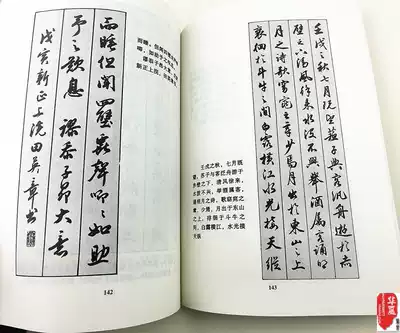 而睡但聞四壁蟲聲唧唧如助
予之歎息
戊寅新正上浣田英章書
142
壬戌之秋七月既望蘇子與客汎舟遊於赤
壁之下清風徐來水波不興舉酒屬客誦明
月之詩歌窈窕之章少焉月出於東山之上
徘徊於斗牛之間白露橫江水光接天縱
壬戌之秋，七月既
望，苏子与客泛舟游于
赤壁之下。清风徐来，
水波不兴，举酒属客，
诵明月之诗，歌窈窕之
章。少焉，月出于东山
之上，徘徊于斗牛之
间。白露横江，水光接
天纵
143
华夏